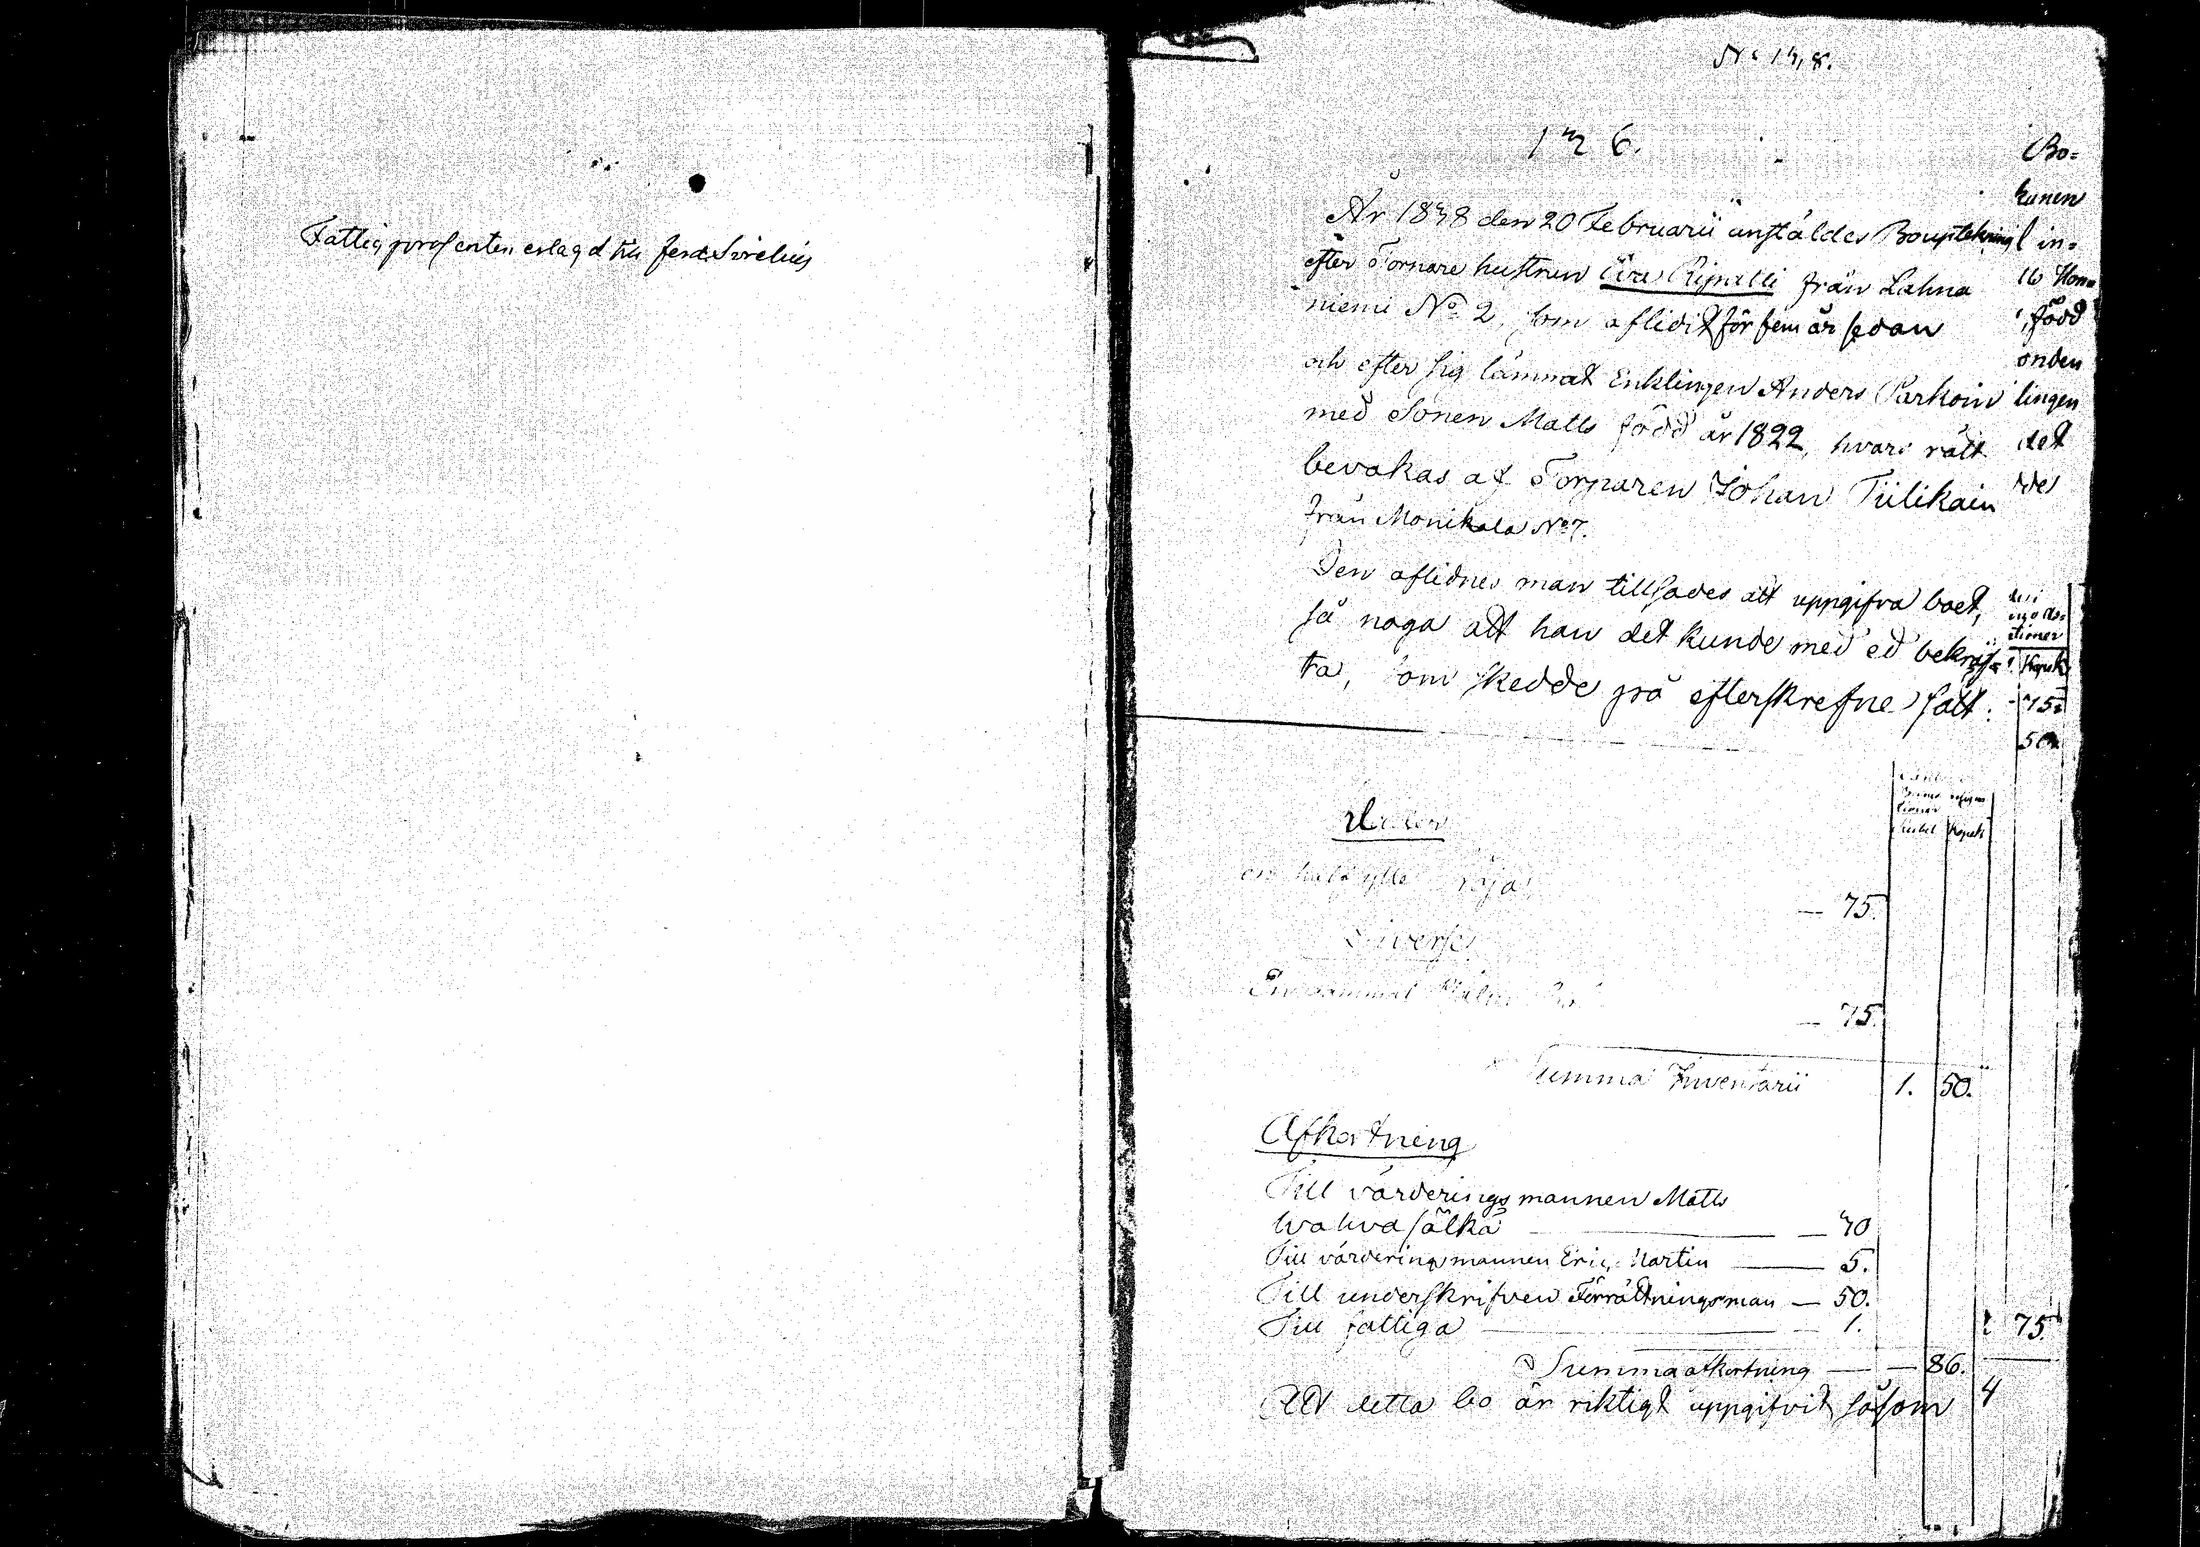 Fattigprosenten erlagd till Ferd. Sirelius
126.
År 1848 den 20 Februarii anstäldes Bouptekning
efter Tornare hustrun Eva Ripatti från Lahna
niemi No 2, som aflidit för fem år sedan
och efter sig lämnat Enklingen Anders Parkoin
med Sonen Matts född år 1822, hvars rätt
bevakas af Torparen Johan Tiilikain
från Monikala No 7.
Den aflidnes man tillsades att uppgifva boet,
så noga att han det kunde med ed bekräf=
ta, som skedde på efterskrefne sätt:
Rubel Kopek
en half ylle tröja
— 75.
Diverse
En gammal
— 75.
Summa Inventarii 1. 50.
Afkortning
Till värderingsmannen Matts
hvahvasälkä — 30
Till värderingsmannen Eric Martin — 5.
Till underskrifven Förrättningsman — 50.
Till fattiga — 1.
Summa afkortning — — 86.
Att detta bo är riktigt uppgifvit såsom
Bo=
kunen
l in=
född
onden
lingen
det
des
Kopek
75
50
75
4